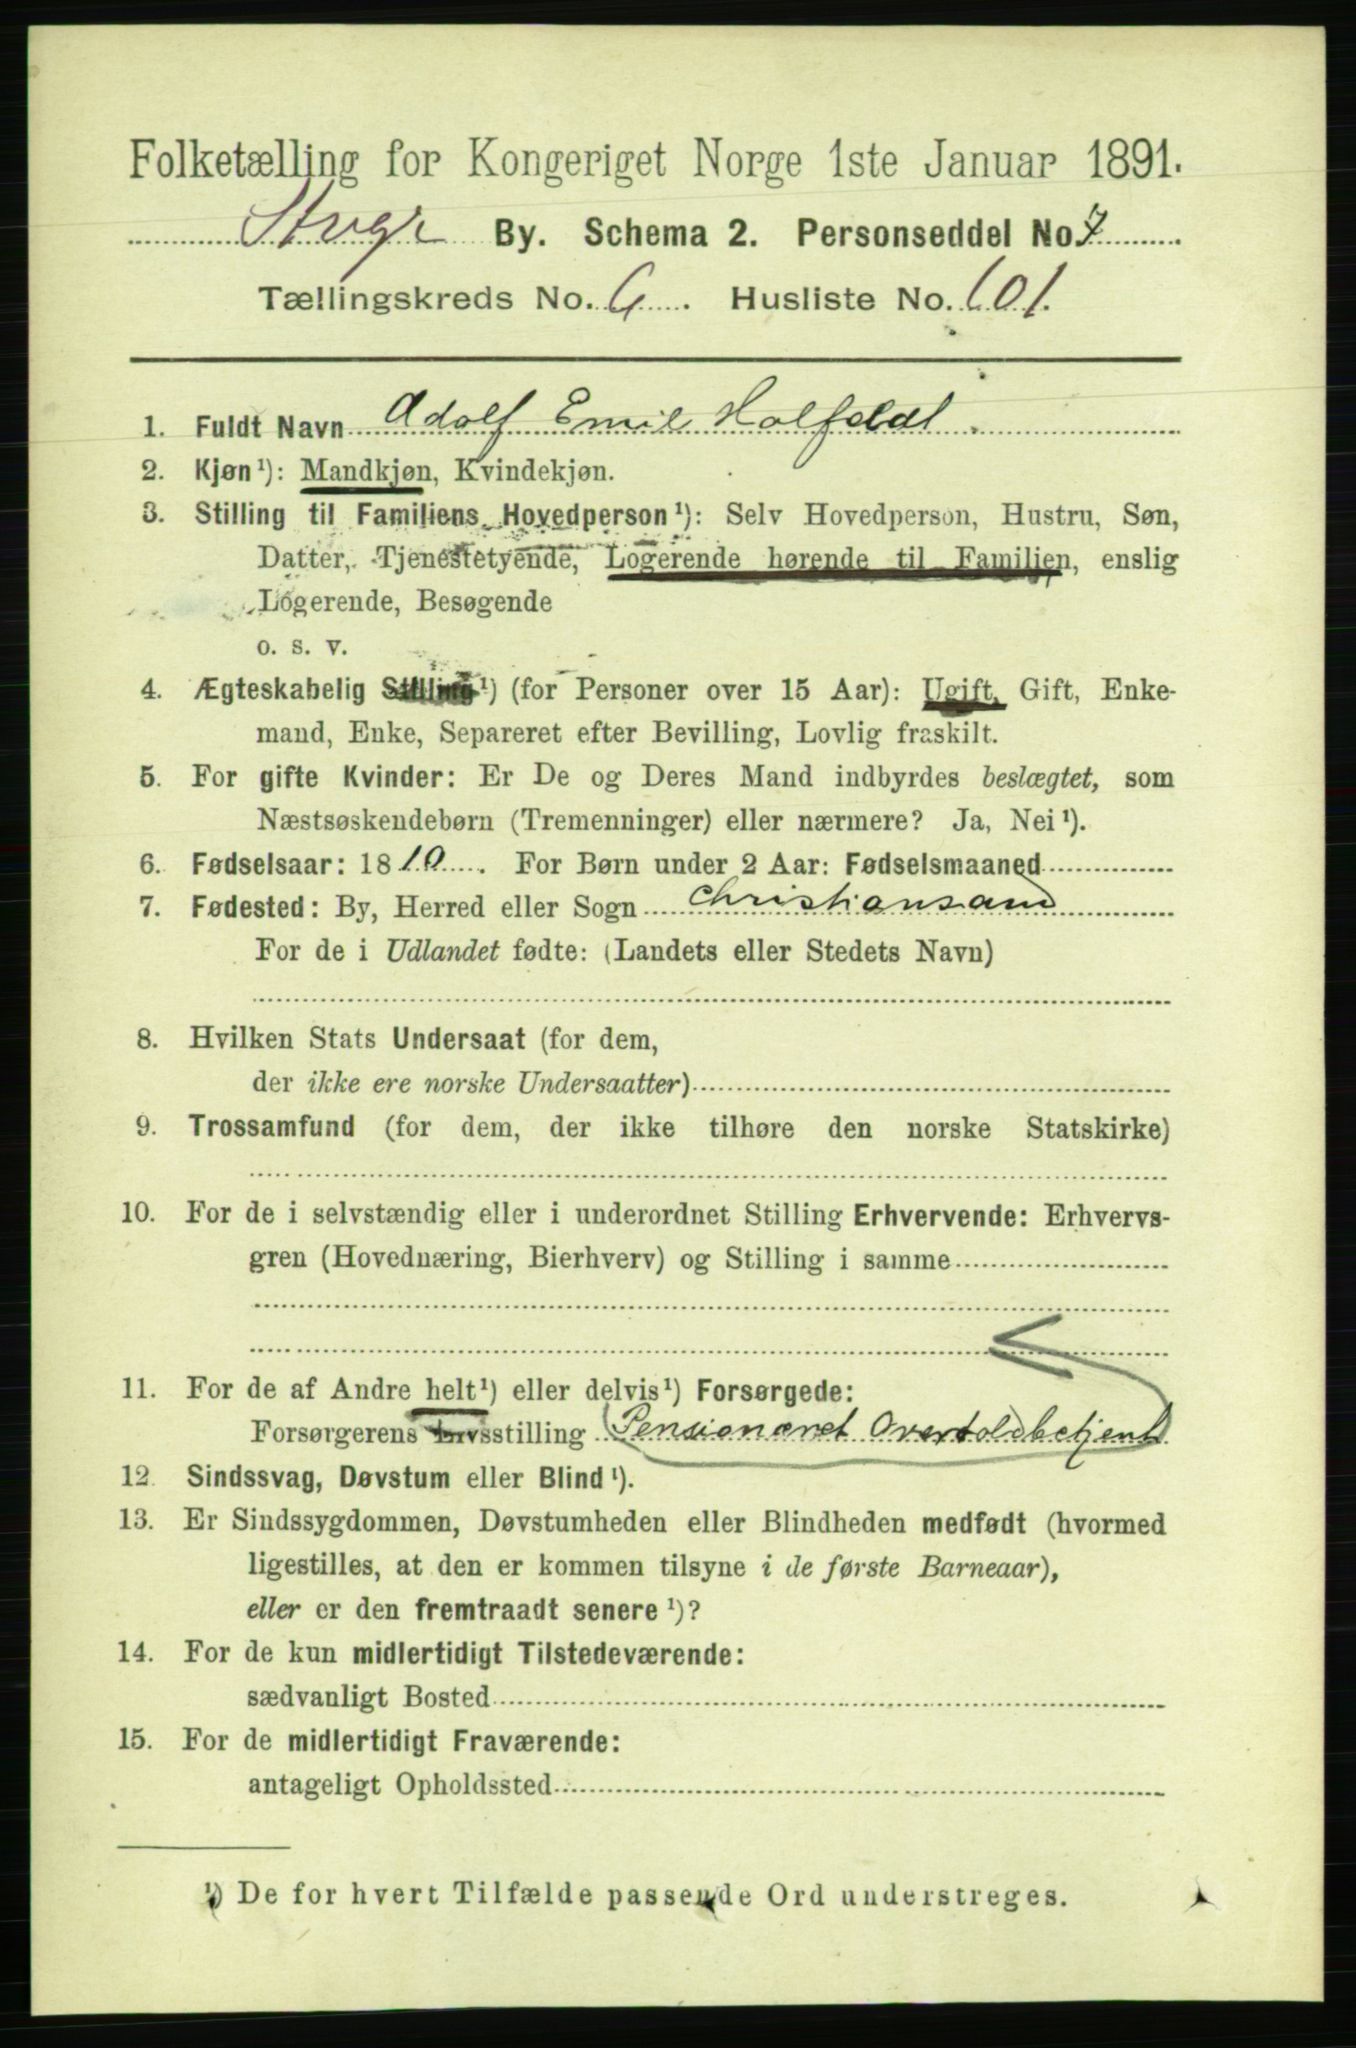 Folketælling for Kongeriget Norge 1ste Januar 1891.
By. Schema 2. Personseddel No 7
Tællingskreds No. 6. Husliste No. 101.
1. Fuldt Navn Adolf Emil Holfeldt.
2. Kjøn¹): Mandkjøn, Kvindekjøn.
3. Stilling til Familiens Hovedperson¹): Selv Hovedperson, Hustru, Søn,
Datter, Tjenestetyende, Logerende hørende til Familien, enslig
Logerende, Besøgende
o. s. v.
4. Ægteskabelig Stilling¹) (for Personer over 15 Aar): Ugift, Gift, Enke-
mand, Enke, Separeret efter Bevilling, Lovlig fraskilt.
5. For gifte Kvinder: Er De og Deres Mand indbyrdes beslægtet, som
Næstsøskendebørn (Tremenninger) eller nærmere? Ja, Nei¹).
6. Fødselsaar: 1810. For Børn under 2 Aar: Fødselsmaaned
7. Fødested: By, Herred eller Sogn Christiansand
For de i Udlandet fødte: (Landets eller Stedets Navn)
8. Hvilken Stats Undersaat (for dem,
der ikke ere norske Undersaatter)
9. Trossamfund (for dem, der ikke tilhøre den norske Statskirke)
10. For de i selvstændig eller i underordnet Stilling Erhvervende: Erhvervs-
gren (Hovednæring, Bierhverv) og Stilling i samme
11. For de af Andre helt¹) eller delvis¹) Forsørgede:
Forsørgerens Livsstilling Pensioneret Overtoldbetjent
12. Sindssvag, Døvstum eller Blind¹).
13. Er Sindssygdommen, Døvstumheden eller Blindheden medfødt (hvormed
ligestilles, at den er kommen tilsyne i de første Barneaar),
eller er den fremtraadt senere¹)?
14. For de kun midlertidigt Tilstedeværende:
sædvanligt Bosted
15. For de midlertidigt Fraværende:
antageligt Opholdssted
¹) De for hvert Tilfælde passende Ord understreges.